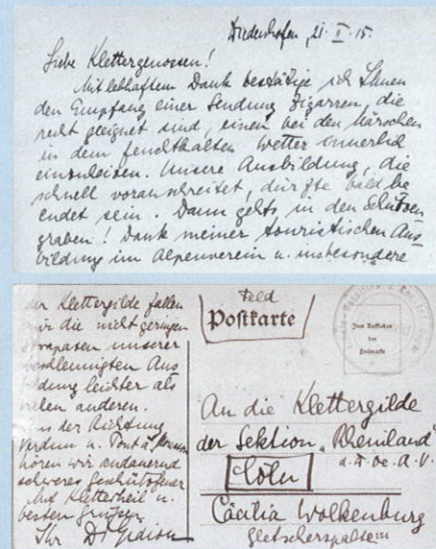 Diedenhofen, 21. II. 15.
Liebe Klettergenossen!
Mit lebhaftem Dank bestätige ich Ihnen
den Empfang einer Sendung Zigarren, die
recht geeignet sind, einen bei den Märschen
in dem feuchtkalten Wetter innerlich
einzuheizen. Unsere Ausbildung, die
schnell voranschreitet, dürfte bald be
endet sein. Dann gehts in den Schützen
graben! Dank meiner touristischen Aus
bildung im Alpenverein u. insbesondere
der Klettergilde fallen
mir die nicht geringen
Strapazen unserer
beschleunigten Aus
bildung leichter als
vielen anderen.
Aus der Richtung
Verdun u. Pont à Mousson
hören wir andauernd
schweres Geschützfeuer
Mit Kletterheil u.
besten Grüßen
Ihr Dr Gidion
Feld
Postkarte
Zum Aufkleben
der
Freimarke
An die Klettergilde
der Sektion „Rheinland"
d. A. Oe. A. V.
Cöln
Cäcilia Wolkenburg
Gletscherspalte